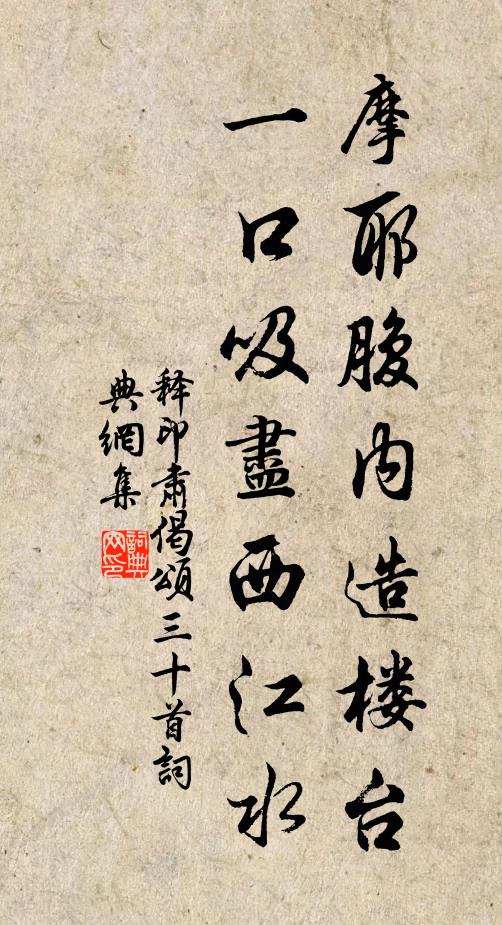 摩耶腹内造楼台
一口吸盡西江水
释印肅偈頌三十首詞
典網集
詞典网印